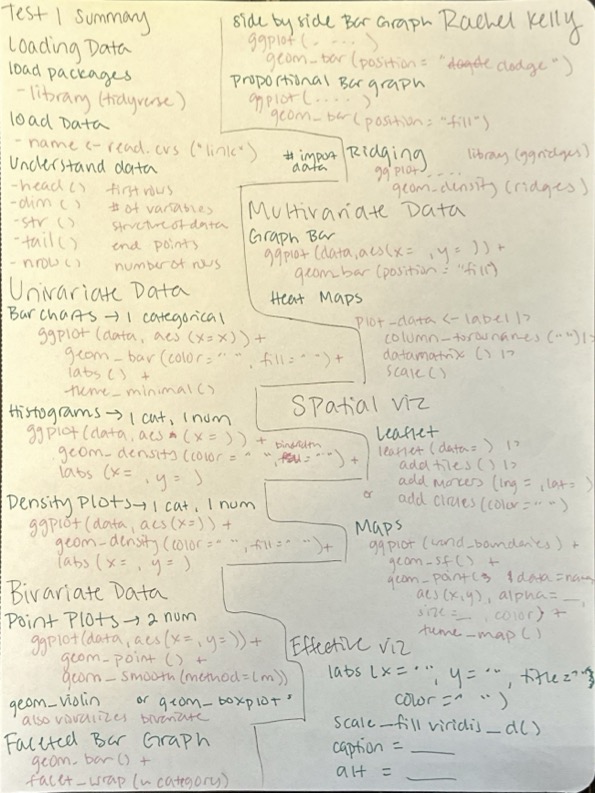 Test 1 Summary
Loading Data
load packages
- library (tidyverse)
load Data
- name <- read.cvs ("link")
# import data
Understand data
- head () first rows
- dim () # of variables
- str () structure of data
- tail () end points
- nrow () number of rows
Univariate Data
Bar charts → 1 categorical
ggplot (data, aes (x=x)) +
geom_bar (color = " ", fill = " ") +
labs () +
theme_minimal ()
Histograms → 1 cat, 1 num
ggplot (data, aes (x= )) +
binwidth
geom_density (color = " ", = " ") +
labs (x= , y= )
Density Plots → 1 cat, 1 num
ggplot (data, aes (x=)) +
geom_density (color = " ", fill = " ") +
labs (x= , y= )
Bivariate Data
Point Plots → 2 num
ggplot (data, aes (x= , y= )) +
geom_point () +
geom_smooth (method = lm))
geom_violin or geom_boxplot
also visualizes bivariate
Faceted Bar Graph
geom_bar () +
facet_wrap (~ category)
Side by side Bar Graph
Rachel Kelly
ggplot (. . . .)
geom_bar (position = "dodge")
Proportional Bar graph
ggplot (. . . .)
geom_bar (position = "fill")
Ridging
library (ggridges)
ggplot . . . .
geom_density (ridges)
Multivariate Data
Graph Bar
ggplot (data, aes (x= , y= )) +
geom_bar (position = "fill)
Heat Maps
plot_data <- label |>
column_to_rownames (" ") |>
datamatrix () |>
scale ()
Spatial viz
Leaflet
leaflet (data = ) |>
add tiles () |>
add markers (lng = , lat = )
or add circles (color = " ")
Maps
ggplot (world_boundaries) +
geom_sf () +
geom_point ( data = name
aes (x,y), alpha = __,
size = __, color) +
theme_map ()
Effective viz
labs (x = " ", y = " ", title = " "
color = " ")
scale_fill viridis_d()
caption = ____
alt = ____